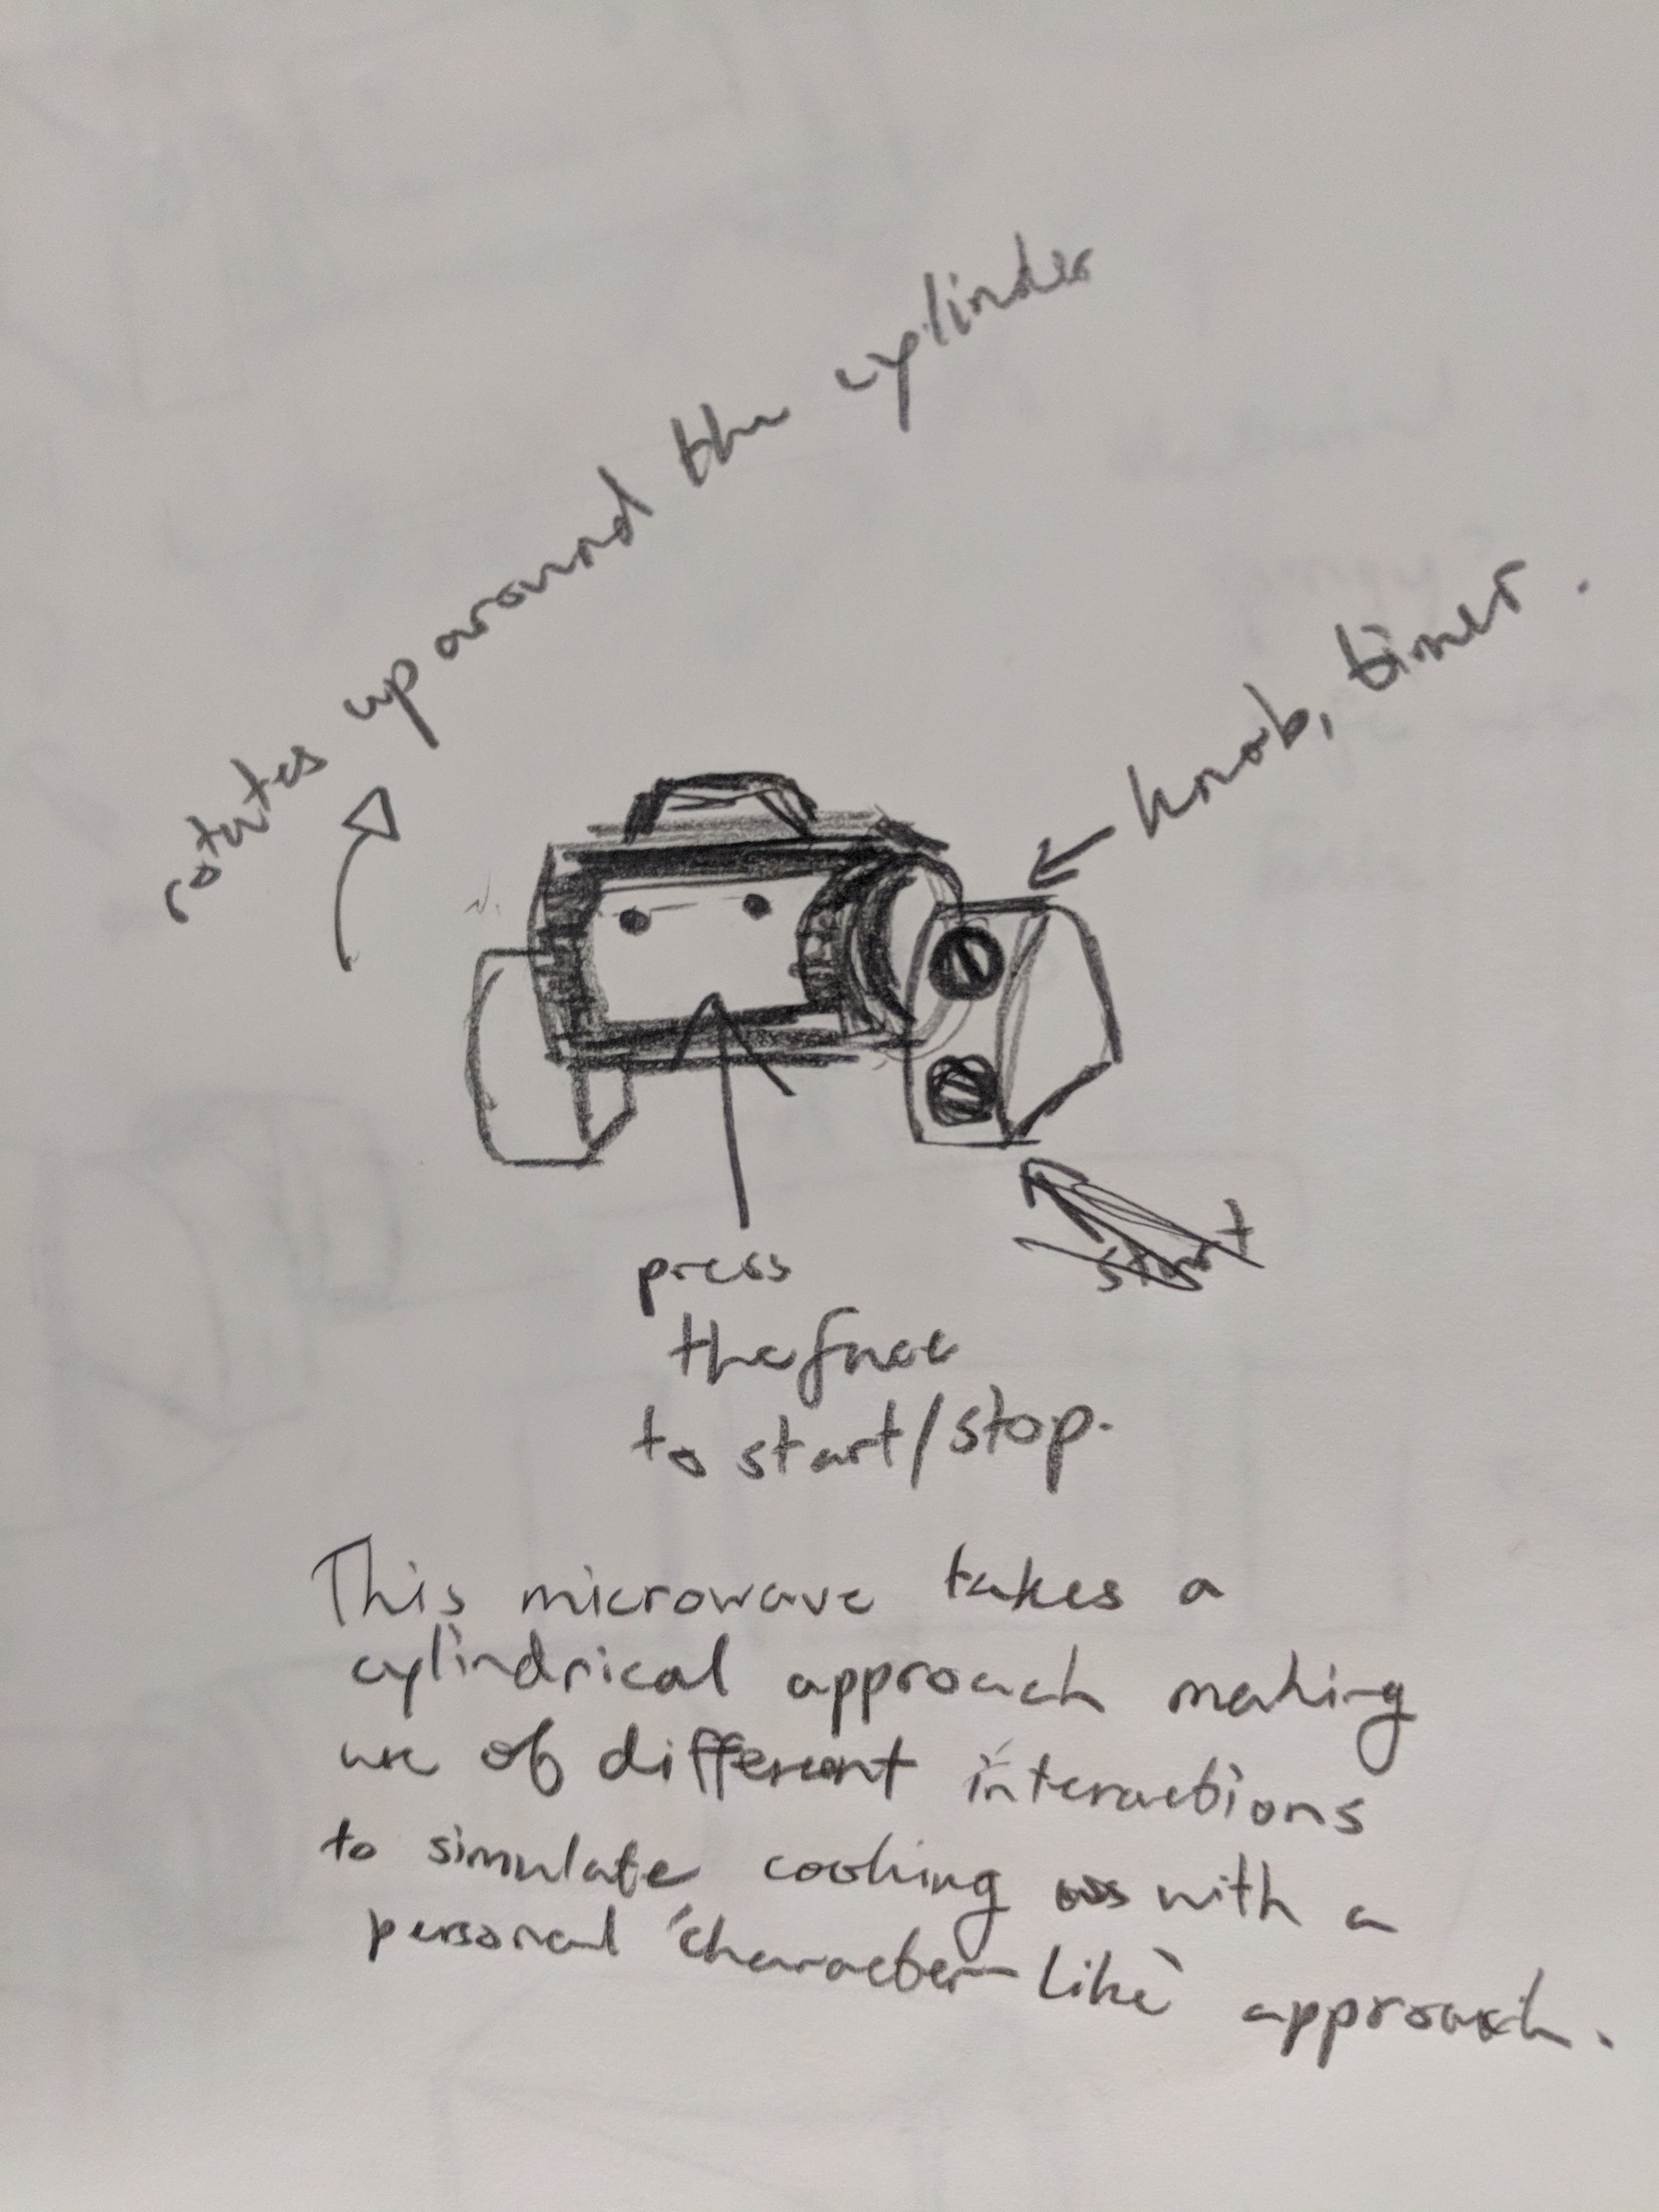 rotates up around the cylinder
knob, timer.
start
press
the face
to start/stop.
This microwave takes a
cylindrical approach making
use of different interactions
to simulate cooking with a
personal 'character-like' approach.